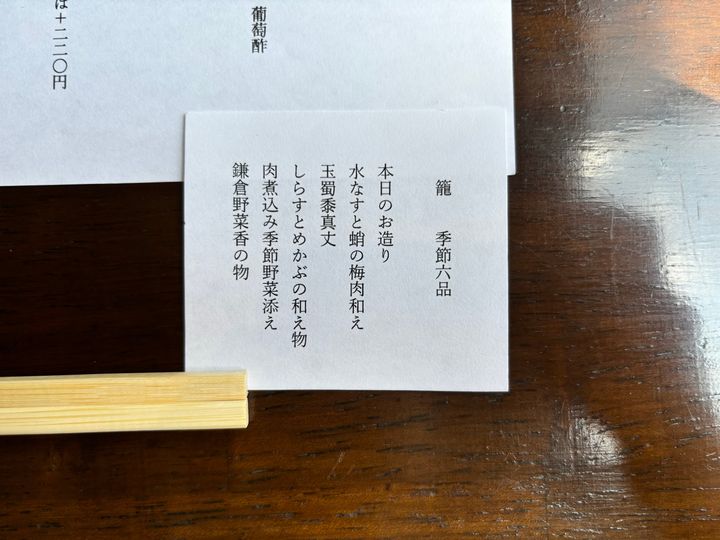 葡萄酢
は＋二二〇円
籠　季節六品
本日のお造り
水なすと蛸の梅肉和え
玉蜀黍真丈
しらすとめかぶの和え物
肉煮込み季節野菜添え
鎌倉野菜香の物